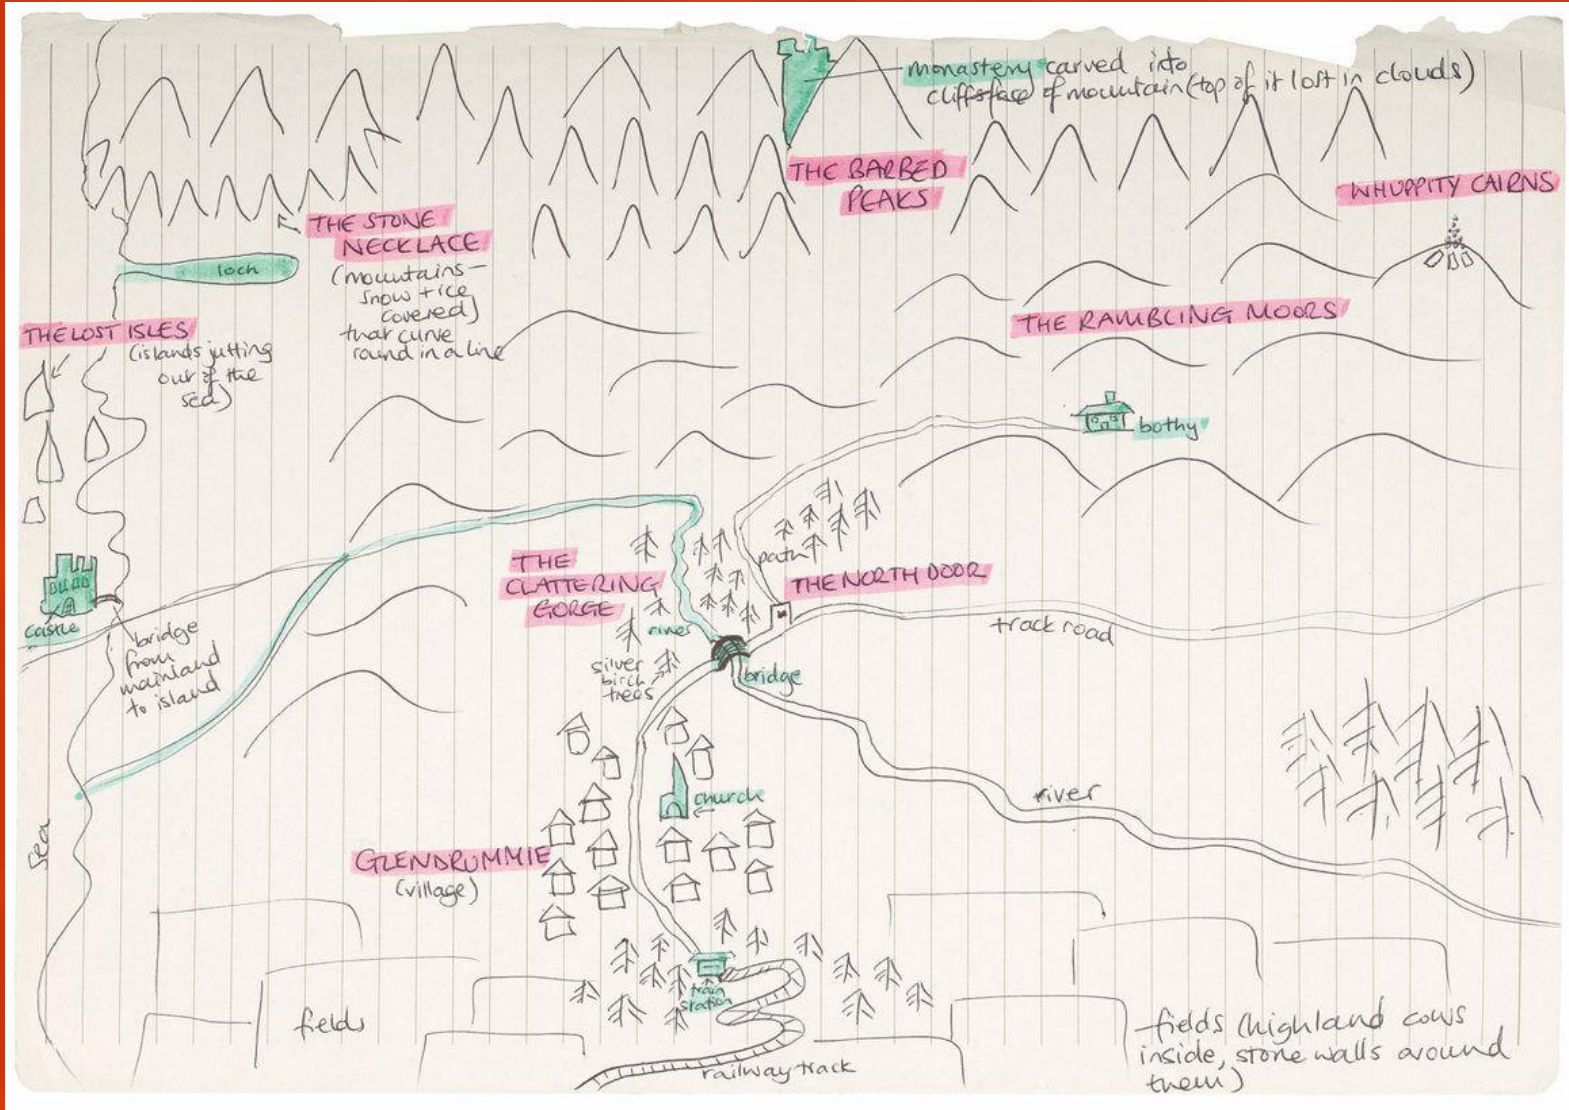 monastery carved into
cliffsface of mountain (top of it lost in clouds)
THE BARBED
PEAKS
WHUPPITY CAIRNS
THE STONE
NECKLACE
(mountains -
snow + ice
covered)
that curve
round in a line
loch
THE LOST ISLES
(islands jutting
out of the
sea)
THE RAMBLING MOORS
bothy
path
THE
CLATTERING
GORGE
THE NORTH DOOR
river
track road
castle
bridge
from
mainland
to island
silver
birch
trees
bridge
church
river
sea
GLENDRUMMIE
(village)
train
station
fields
railway track
fields (highland cows
inside, stone walls around
them)